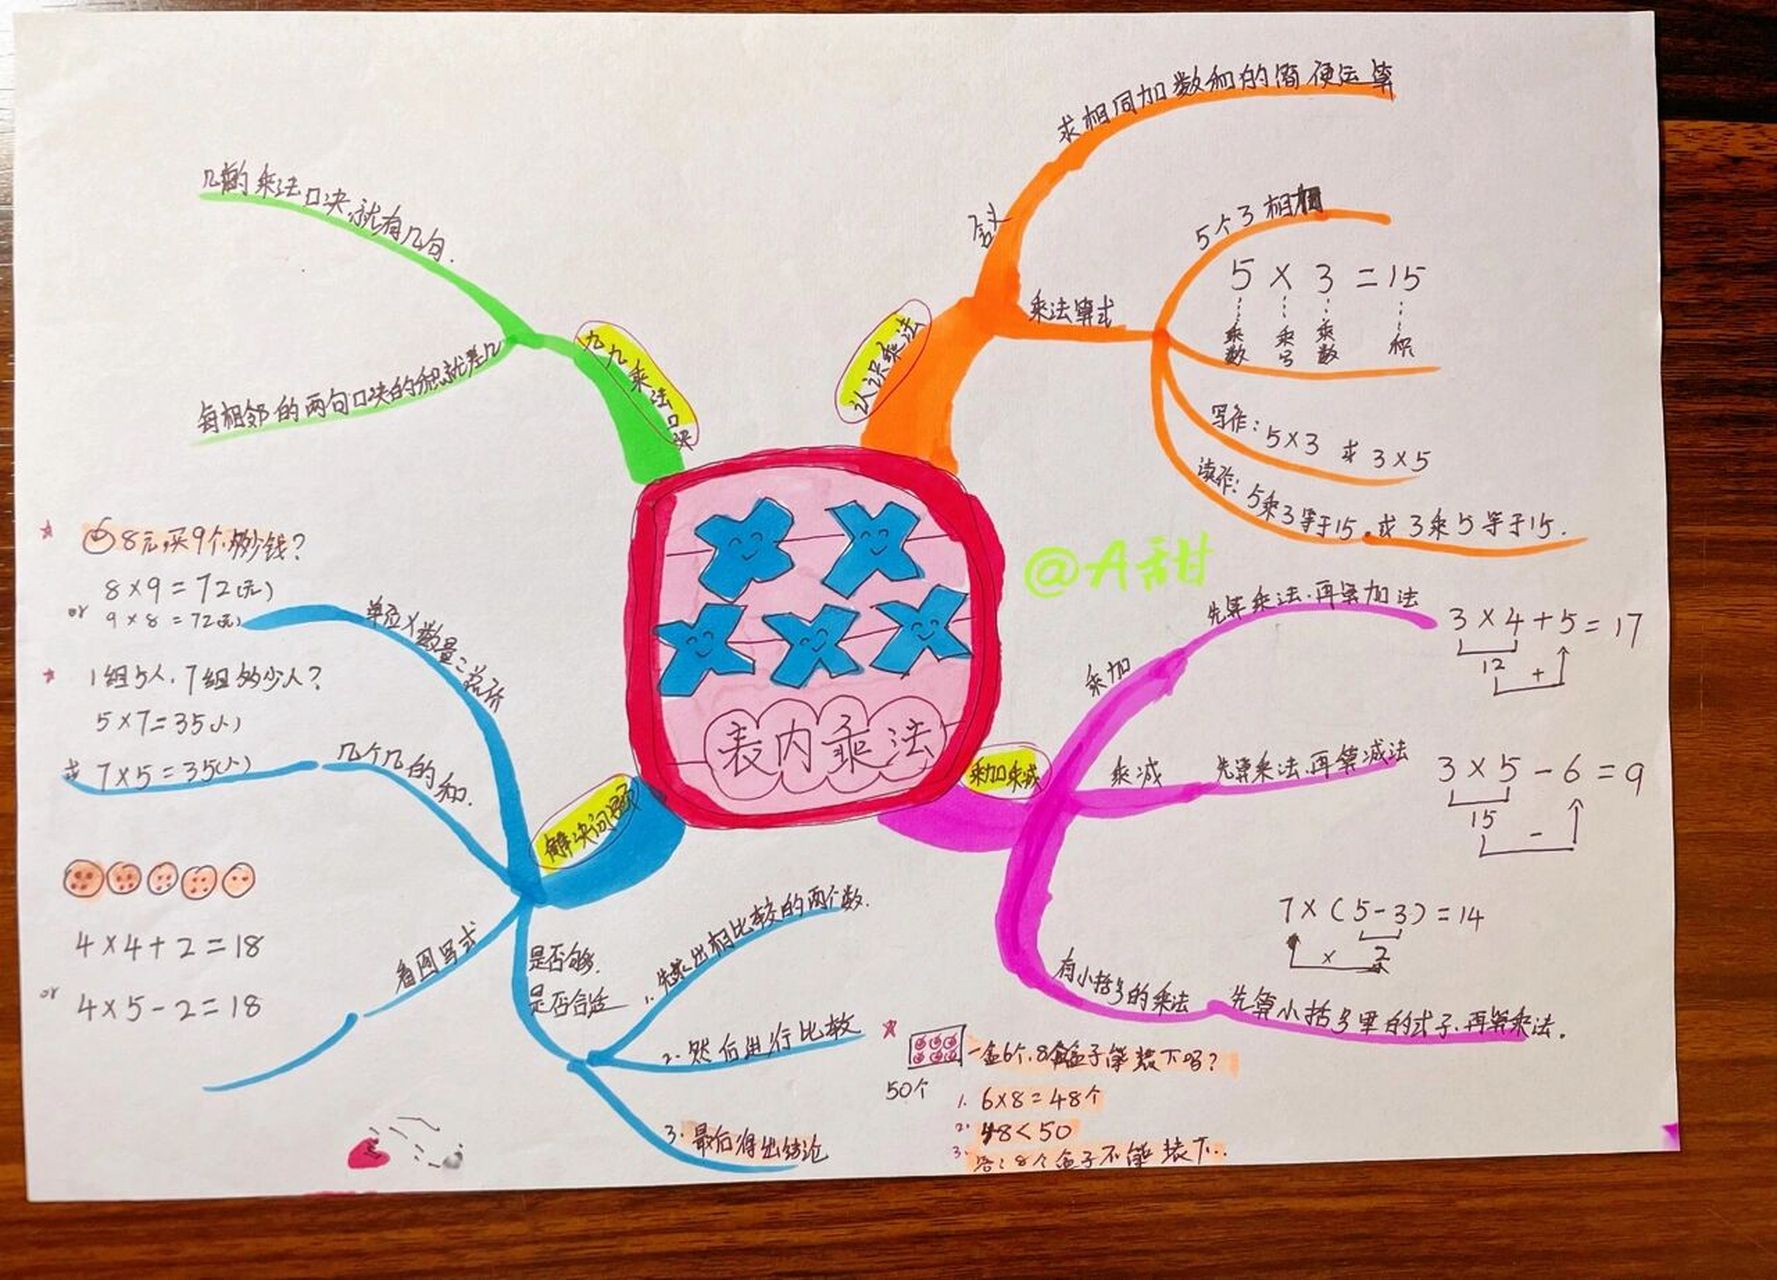 表内乘法
认识乘法
含义
求相同加数和的简便运算
乘法算式
5个3相加
5 × 3 = 15
乘数 乘号 乘数 积
写作：5×3 或 3×5
读作：5乘3等于15。或 3乘5等于15.
@A甜
乘加乘减
乘加
先算乘法.再算加法
3×4+5=17
12
+
乘减
先算乘法.再算减法
3×5-6=9
15
-
有小括号的乘法
先算小括号里的式子.再算乘法。
7×(5-3)=14
× 2
九九乘法口诀
几的乘法口决.就有几句.
每相邻的两句口决的积就差几
解决问题
单位×数量=总价
8元.买9个.多少钱?
8×9=72(元)
or 9×8=72(元)
几个几的和.
1组5人.7组多少人?
5×7=35(人)
或 7×5=35(人)
看图写式
4×4+2=18
or 4×5-2=18
是否够.
是否合适
1. 先求出相比较的两个数.
2. 然后进行比较
3. 最后得出结论
一盒6个.8个盒子能装下吗?
50个
1. 6×8=48个
2. 48<50
3. 答:8个盒子不能装下..